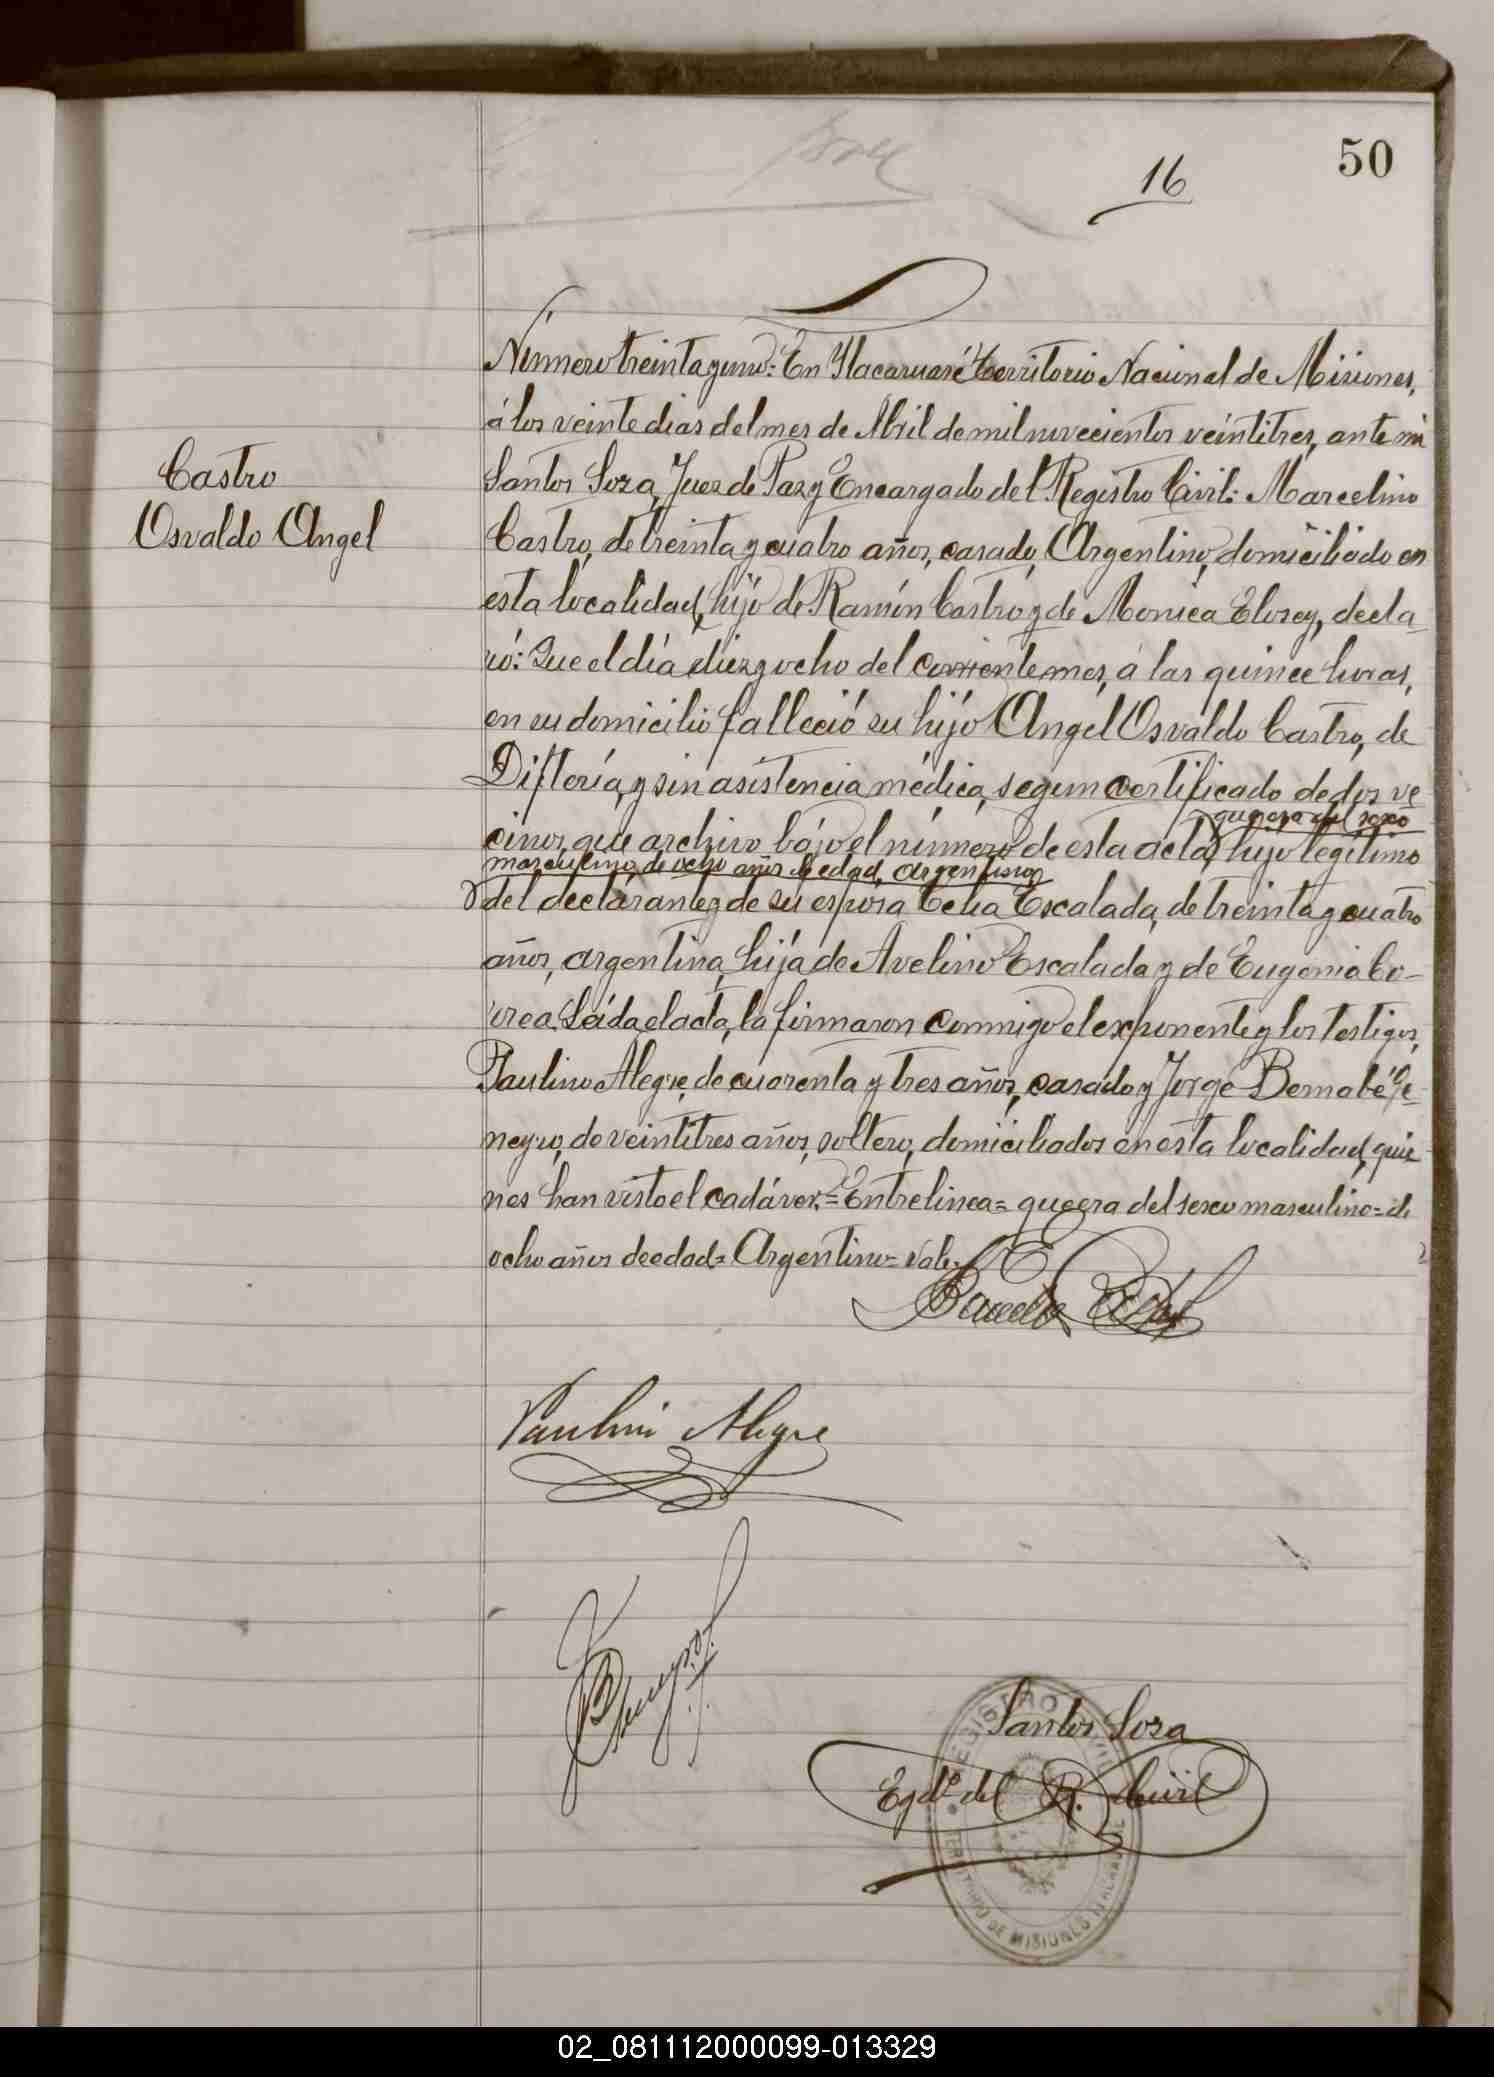 50
16
Número treinta y uno: En Itacaruaré Territorio Nacional de Misiones,
á los veinte dias del mes de Abril de mil novecientos veintitres, ante mi
Castro
Osvaldo Angel
Santos Soza, Juez de Paz y Encargado del Registro Civil: Marcelino
Castro, de treinta y cuatro años, casado, Argentino, domiciliado en
esta localidad, hijo de Ramón Castro y de Monica Elosey, decla-
ró: Que el día diez y ocho del corriente mes, á las quince horas,
en su domicilio falleció su hijo Angel Osvaldo Castro, de
Difteria, y sin asistencia médica, segun certificado de dos ve-
que era del sexo
cinos, que archivo bajo el número de esta acta, hijo legítimo
masculino, de ocho años de edad, Argentino
del declarante y de su esposa Celia Escalada, de treinta y cuatro
años, argentina, hija de Avelino Escalada y de Eugenia Co-
rrea. Leída el acta, la firmaron conmigo el exponente y los testigos,
Paulino Alegre, de cuarenta y tres años, casado y Jorge Bernabé
negro, de veintitres años, soltero, domiciliados en esta localidad, quie-
nes han visto el cadáver.= Entrelinea= que era del sexo masculino= de
ocho años de edad= Argentino= Vale.
Paulino Alegre
Santos Soza
Egdo. del R. Civil
REGISTRO CIVIL
TERRITORIO DE MISIONES ITACARUARE
02_081112000099-013329